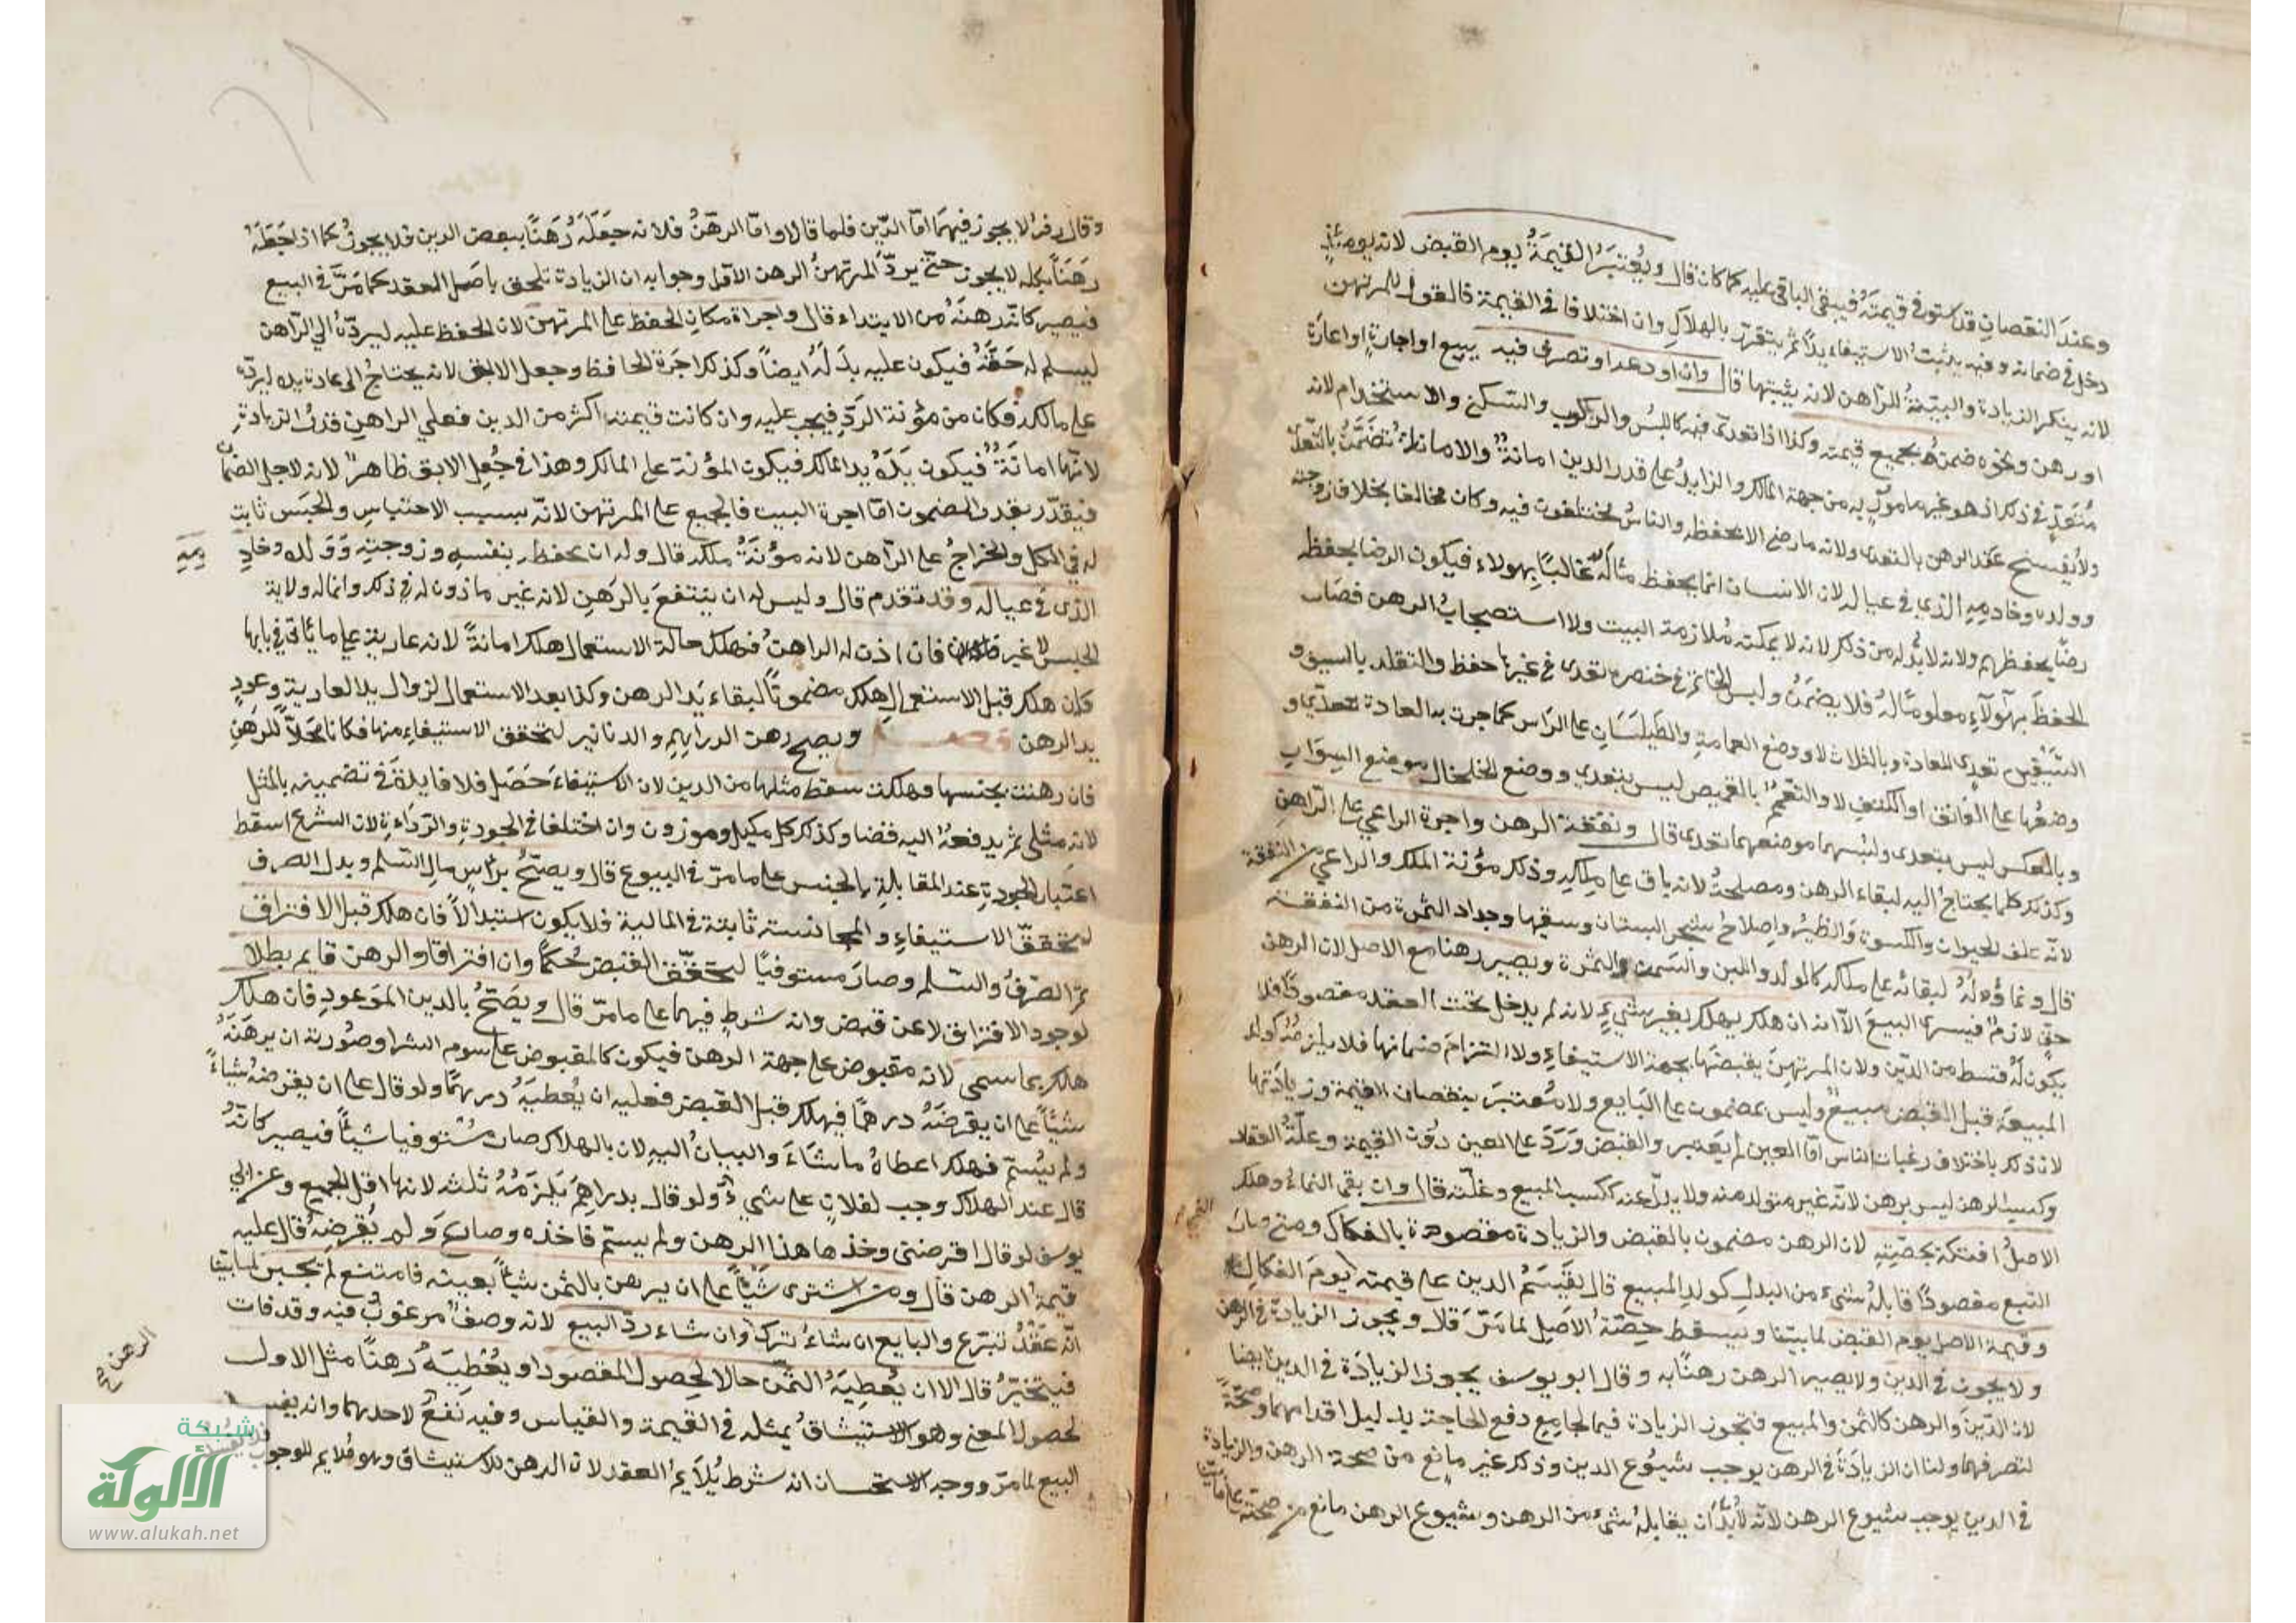 وعند النقصان قد استوفى قيمته فيبقى الباقي عليه كما كان قال ويعتبر القيمة يوم القبض لانه يومئذٍ
دخل في ضمانه وفيه يثبت الاستيفاء يدًا ثم يتقرر بالهلاك وان اختلفا في القيمة فالقول للمرتهن
لانه ينكر الزيادة والبينة للراهن لانه يثبتها قال وان اودعه او تصرف فيه ببيع او اجارة او اعارة
او رهن ونحوه ضمنه بجميع قيمته وكذا اذا تعدى فيه كاللبس والركوب والسكنى والاستخدام لانه
متعدٍ في ذلك اذ هو غير مامور به من جهة المالك والزايد على قدر الدين امانة والامانات تضمن بالتعدي
ولا يفسخ عقد الرهن بالتعدي ولانه ما رضي الا بحفظه والناس يختلفون فيه وكان مخالفا بخلاف زوجته
وولده وخادمه الذي في عياله لان الانسان انما يحفظ ماله غالبًا بهولاء فيكون الرضا بحفظه
رضًا بحفظهم ولانه لا بد له من ذلك لانه لا يمكنه ملازمة البيت ولا استصحاب الرهن فصار
الحفظ بهؤلاء معلومًا له فلا يضمن ولبس الخاتم في خنصره تعدى وفي غيرها حفظ والتقلد بالسيف و
السيفين تعدى للعادة وبالثلاث لا ووضع العمامة والطيلسان على الراس كما جرت به العادة تعدي و
وضعها على العاتق او الكتف لا والتعمم بالقميص ليس بتعدى ووضع الخلخال موضع السوار
وبالعكس ليس بتعدى ولبسهما موضعهما تعدى قال ونفقة الرهن واجرة الراعي على الراهن
وكذلك كلما يحتاج اليه لبقاء الرهن ومصلحته لانه باق على ملكه وذلك مؤنة الملك والراعي من النفقة
لانه علف الحيوان والكسوة والظئر واصلاح شجر البستان وسقيها وجداد الثمرة من النفقة
قال ونماؤه له لبقائه على ملكه كالولد واللبن والسمن والثمرة ويصير رهنا مع الاصل لان الرهن
حق لازم فيسرى البيع الا انه ان هلك يهلك بغير شيء لانه لم يدخل تحت العقد مقصودًا فلا
يكون له قسط من الدين ولان المرتهن يقبضها بجهة الاستيفاء ولا التزام ضمانها فلا يلزمه كولد
المبيعة قبل القبض مبيع وليس بمضمون على البايع ولا معتبر بنقصان القيمة وزيادتها
لان ذلك باختلاف رغبات الناس اما العين لم يتغير والقبض ورد على العين دون القيمة وغلة العقار
وكسب الرهن ليس برهن لانه غير متولد منه ولا بدل عنه ككسب المبيع وغلته قال وان بقى النماء وهلك
الاصل افتكه بحصته لان الرهن مضمون بالقبض والزيادة مقصودة بالفكاك ومتى صار
التبع مقصودًا قابله شيء من البدل كولد المبيع قال يقسم الدين على قيمته يوم الفكاك
وقيمة الاصل يوم القبض لما بينا ويسقط حصة الاصل لما مر قال ويجوز الزيادة في الرهن
ولا يجوز في الدين ولا يصير الرهن رهنًا به وقال ابو يوسف يجوز الزيادة في الدين ايضا
لان الدين والرهن كالثمن والمبيع فتجوز الزيادة فيهما لجامع دفع الحاجة بدليل اقدامهما وصحة
تصرفهما ولنا ان الزيادة في الرهن يوجب شيوع الدين وذلك غير مانع من صحة الرهن والزيادة
في الدين يوجب شيوع الرهن لانه لا بد ان يقابله شيء من الرهن وشيوع الرهن مانع من صحته على ما بينا
وقال زفر لا يجوز فيهما اما الدين فلما قالا واما الرهن فلانه جعله رهنًا ببعض الدين فلا يجوز كما اذا جعله
رهنًا بكله لا يجوز حتى يرد المرتهن الرهن الاول وجوابه ان الزيادة تلحق باصل العقد كما مر في البيع
فيصير كانه رهنه من الابتداء قال واجرة مكان الحفظ على المرتهن لان الحفظ عليه ليرده الى الراهن
ليسلم له حقه فيكون عليه بدله ايضًا وكذلك اجرة الحافظ وجعل الابق لانه يحتاج الى عادة يده ليرده
على مالكه فكان من مؤنة الرد فيجب عليه وان كانت قيمته اكثر من الدين فعلى الراهن قدر الزيادة
لانها امانة فيكون يده يد المالك فيكون المؤنة على المالك وهذا في جعل الابق ظاهر لانه لاجل الضمان
فيقدر بقدر المضمون اما اجرة البيت فالجميع على المرتهن لانه بسبب الاحتباس والحبس ثابت
له في الكل والخراج على الراهن لانه مؤنة ملكه قال وله ان يحفظه بنفسه وزوجته وولده وخادمه
الذي في عياله وقد تقدم قال وليس له ان ينتفع بالرهن لانه غير ماذون له في ذلك وانما له ولاية
الحبس لا غير فان اذن له الراهن فهلك حالة الاستعمال هلك امانة لانه عارية على ما ياتي في بابها
فان هلك قبل الاستعمال هلك مضمونًا لبقاء يد الرهن وكذا بعد الاستعمال لزوال يد العارية وعود
يد الرهن فصل ويصح رهن الدراهم والدنانير لتحقق الاستيفاء منها فكانا محلا للرهن
فان رهنت بجنسها وهلكت سقط مثلها من الدين لان الاستيفاء حصل فلا فايدة في تضمينه بالمثل
لانه مثلي ثم يدفعه اليه قضا وكذلك كل مكيل وموزون وان اختلفا في الجودة والرداءة لان الشرع اسقط
اعتبار الجودة عند المقابلة بالجنس على ما مر في البيوع قال ويصح براس مال السلم وبدل الصرف
لتحقق الاستيفاء والمجانسة ثابتة في المالية فلا يكون استبدالًا فان هلك قبل الافتراق
تم الصرف والسلم وصار مستوفيًا لتحقق القبض حكمًا وان افترقا والرهن قايم بطلا
لوجود الافتراق لا عن قبض وانه شرط فيهما على ما مر قال ويصح بالدين الموعود فان هلك
هلك بما سمى لانه مقبوض على جهة الرهن فيكون كالمقبوض على سوم الشرا وصورته ان يرهنه
شيئًا على ان يقرضه درهمًا فيهلك قبل القبض فعليه ان يعطيه درهمًا ولو قال على ان يقرضه شياءً
ولم يسم فهلك اعطاه ما شاء والبيان اليه لان بالهلاك صار مستوفيا شيئًا فيصير كانه
قال عند الهلاك وجب لفلان على شيء ولو قال بدراهم يلزمه ثلث لانها اقل الجميع وعن ابي
يوسف لو قال اقرضني وخذ هذا الرهن ولم يسم فاخذه وضاع ولم يقرضه قال عليه
قيمة الرهن قال ومن اشترى شيًا على ان يرهن بالثمن شيًا بعينه فامتنع لم يجبر لما بينا
انه عقد تبرع والبايع ان شاء ترك وان شاء رد البيع لانه وصف مرغوب فيه وقد فات
فيتخير قال الا ان يعطيه الثمن حالا لحصول المقصود او يعطيه رهنًا مثل الاول
لحصول المعنى وهو الاستيثاق بمثله في القيمة والقياس وفيه نفع لاحدهما وانه يفسد
البيع لما مر ووجه الاستحسان انه شرط يلايم العقد لان الرهن للاستيثاق وهو ملايم للوجوب
الرهن صح
شبكة
الألوكة
www.alukah.net